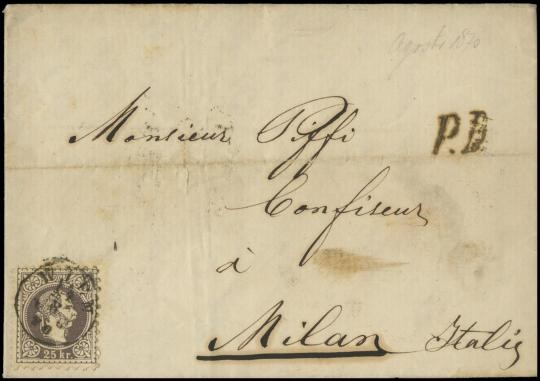 Agosto 1870
Monsieur Piffi
P.D
Confiseur
à
Milan Italie
WIEN
25 kr.